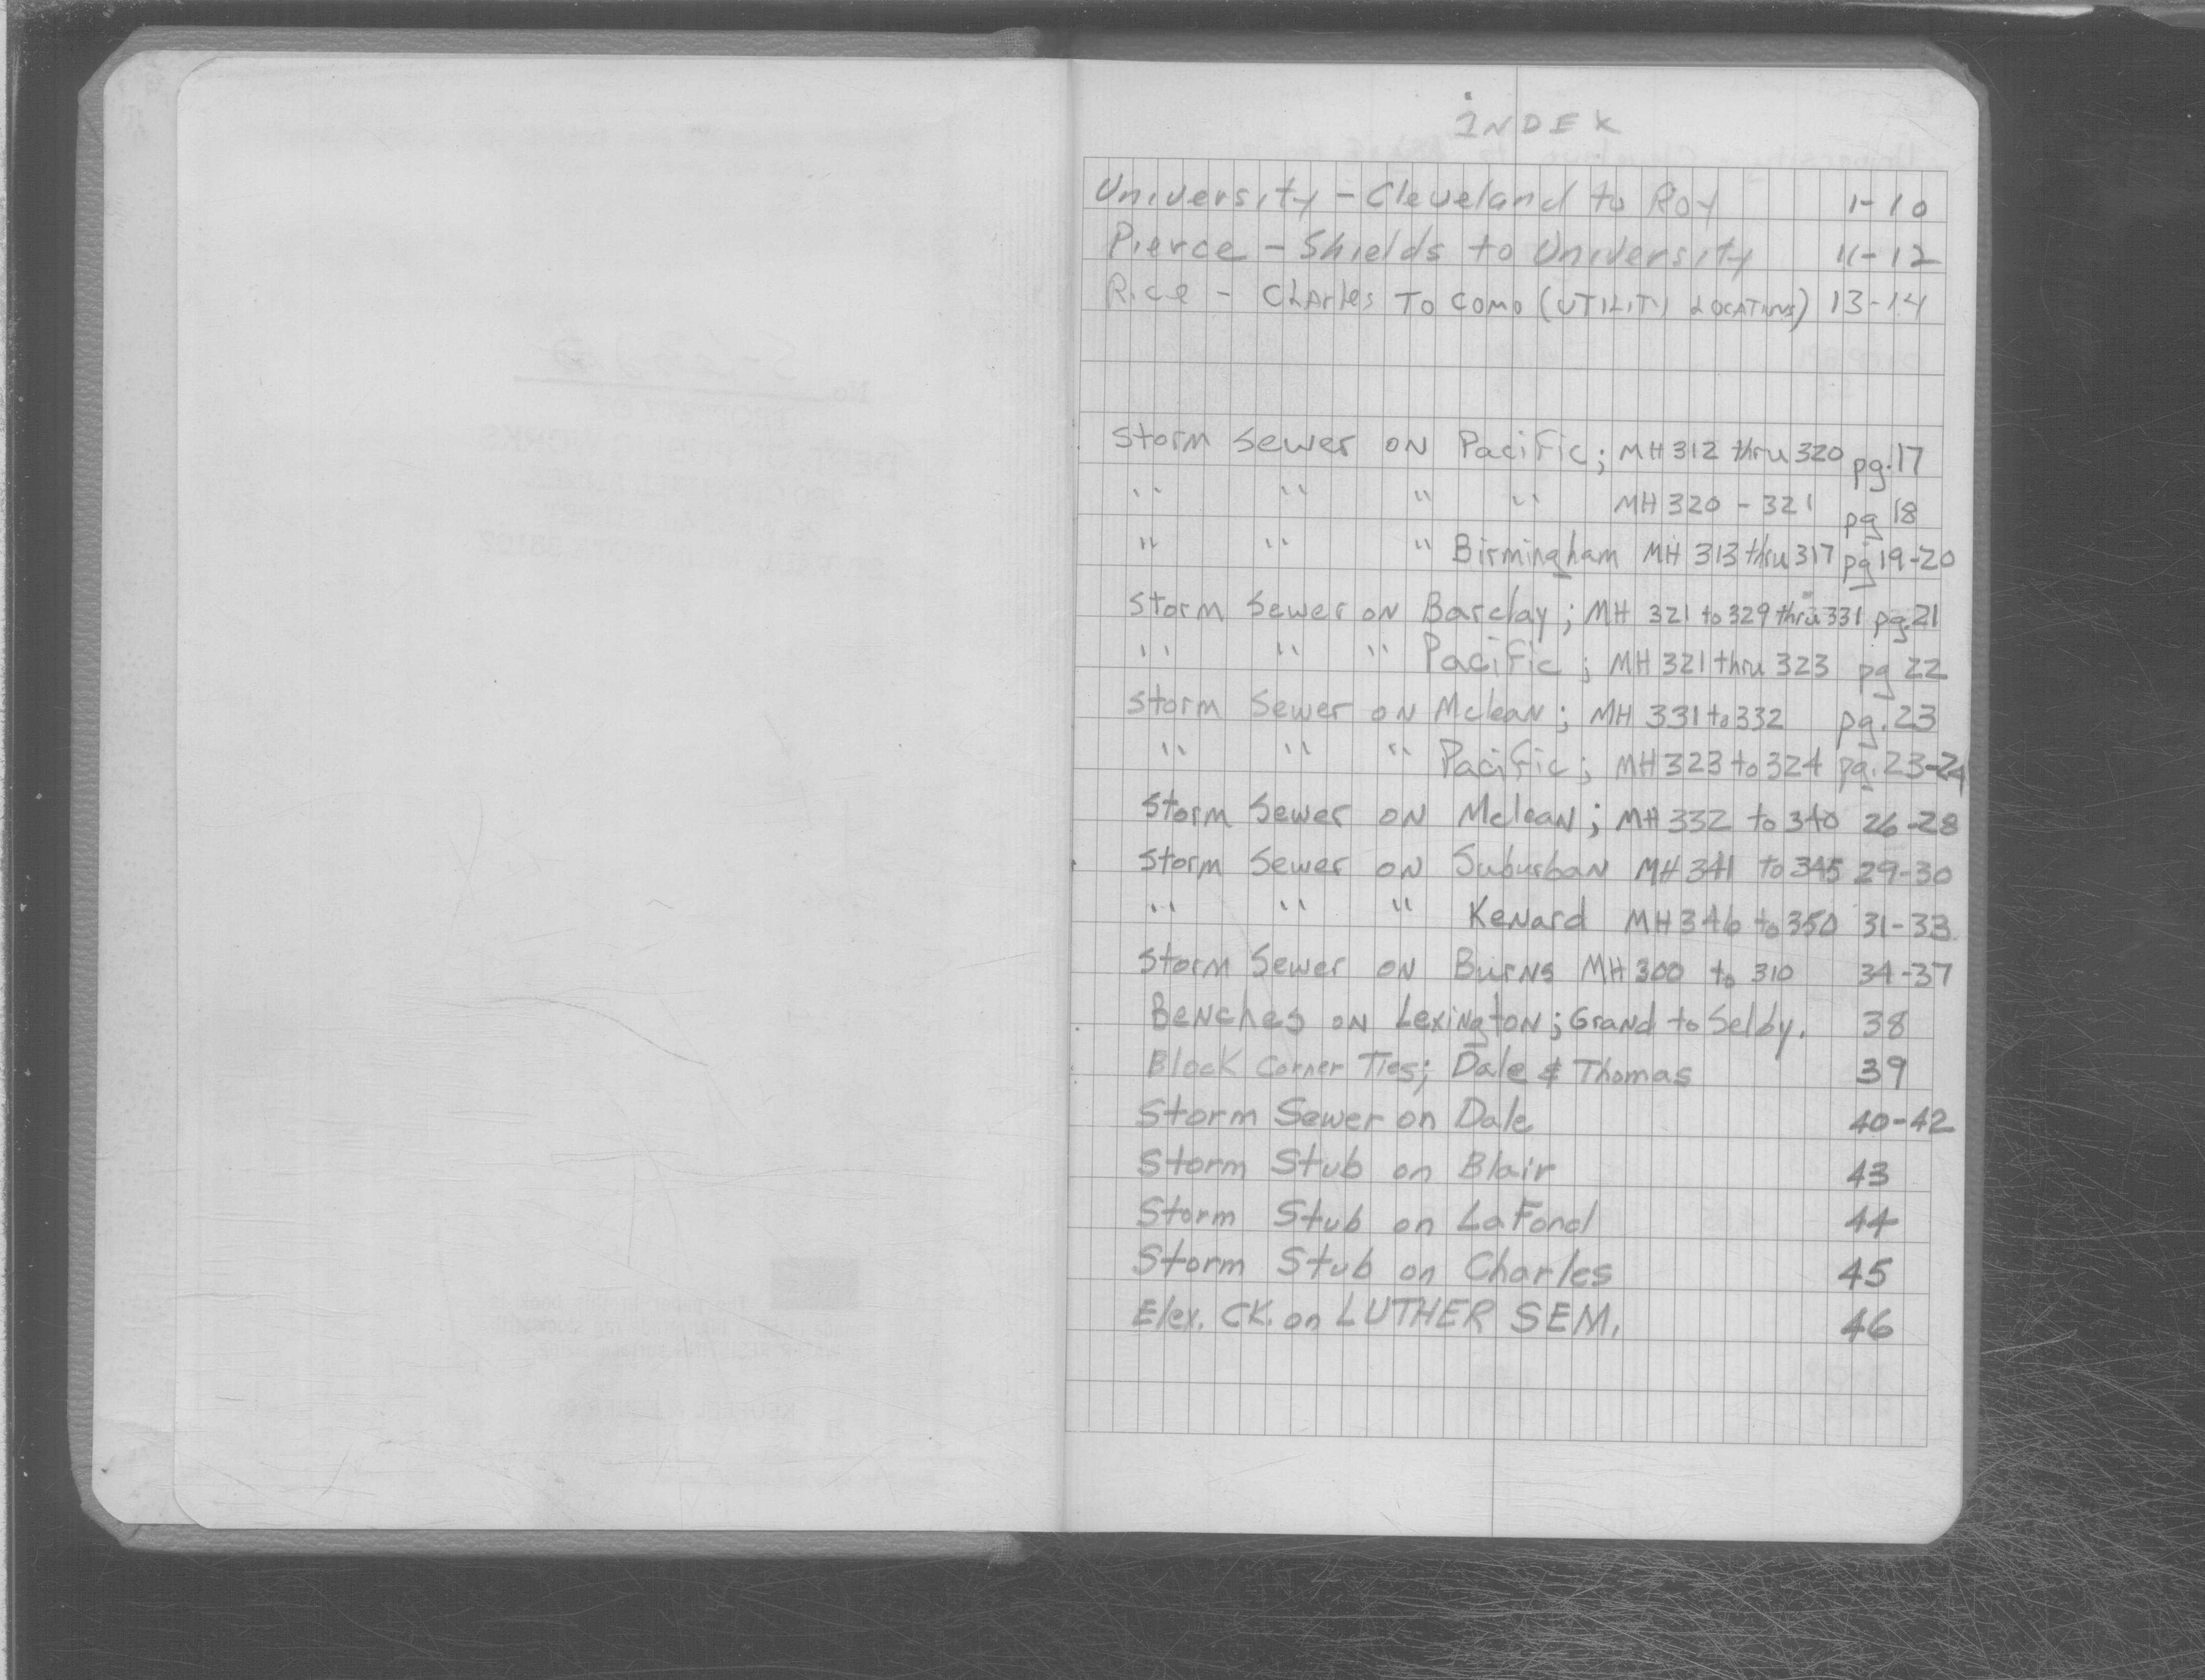 INDEX
University - Cleveland to Roy 1-10
Pierce - Shields to University 11-12
Rice - Charles To Como (UTILITY LOCATIONS) 13-14
Storm Sewer on Pacific; MH 312 thru 320 pg. 17
" " " " MH 320 - 321 pg 18
" " " Birmingham MH 313 thru 317 pg 19-20
Storm Sewer on Barclay; MH 321 to 329 thru 331 pg. 21
" " " Pacific; MH 321 thru 323 pg 22
Storm Sewer on Mclean; MH 331 to 332 pg. 23
" " " Pacific; MH 323 to 324 pg. 23-24
Storm Sewer on Mclean; MH 332 to 340 26-28
Storm Sewer on Suburban MH 341 to 345 29-30
" " " Kenard MH 346 to 350 31-33
Storm Sewer on Burns MH 300 to 310 34-37
Benches on Lexington; Grand to Selby. 38
Block Corner Ties; Dale & Thomas 39
Storm Sewer on Dale 40-42
Storm Stub on Blair 43
Storm Stub on LaFond 44
Storm Stub on Charles 45
Elev. CK. on LUTHER SEM. 46